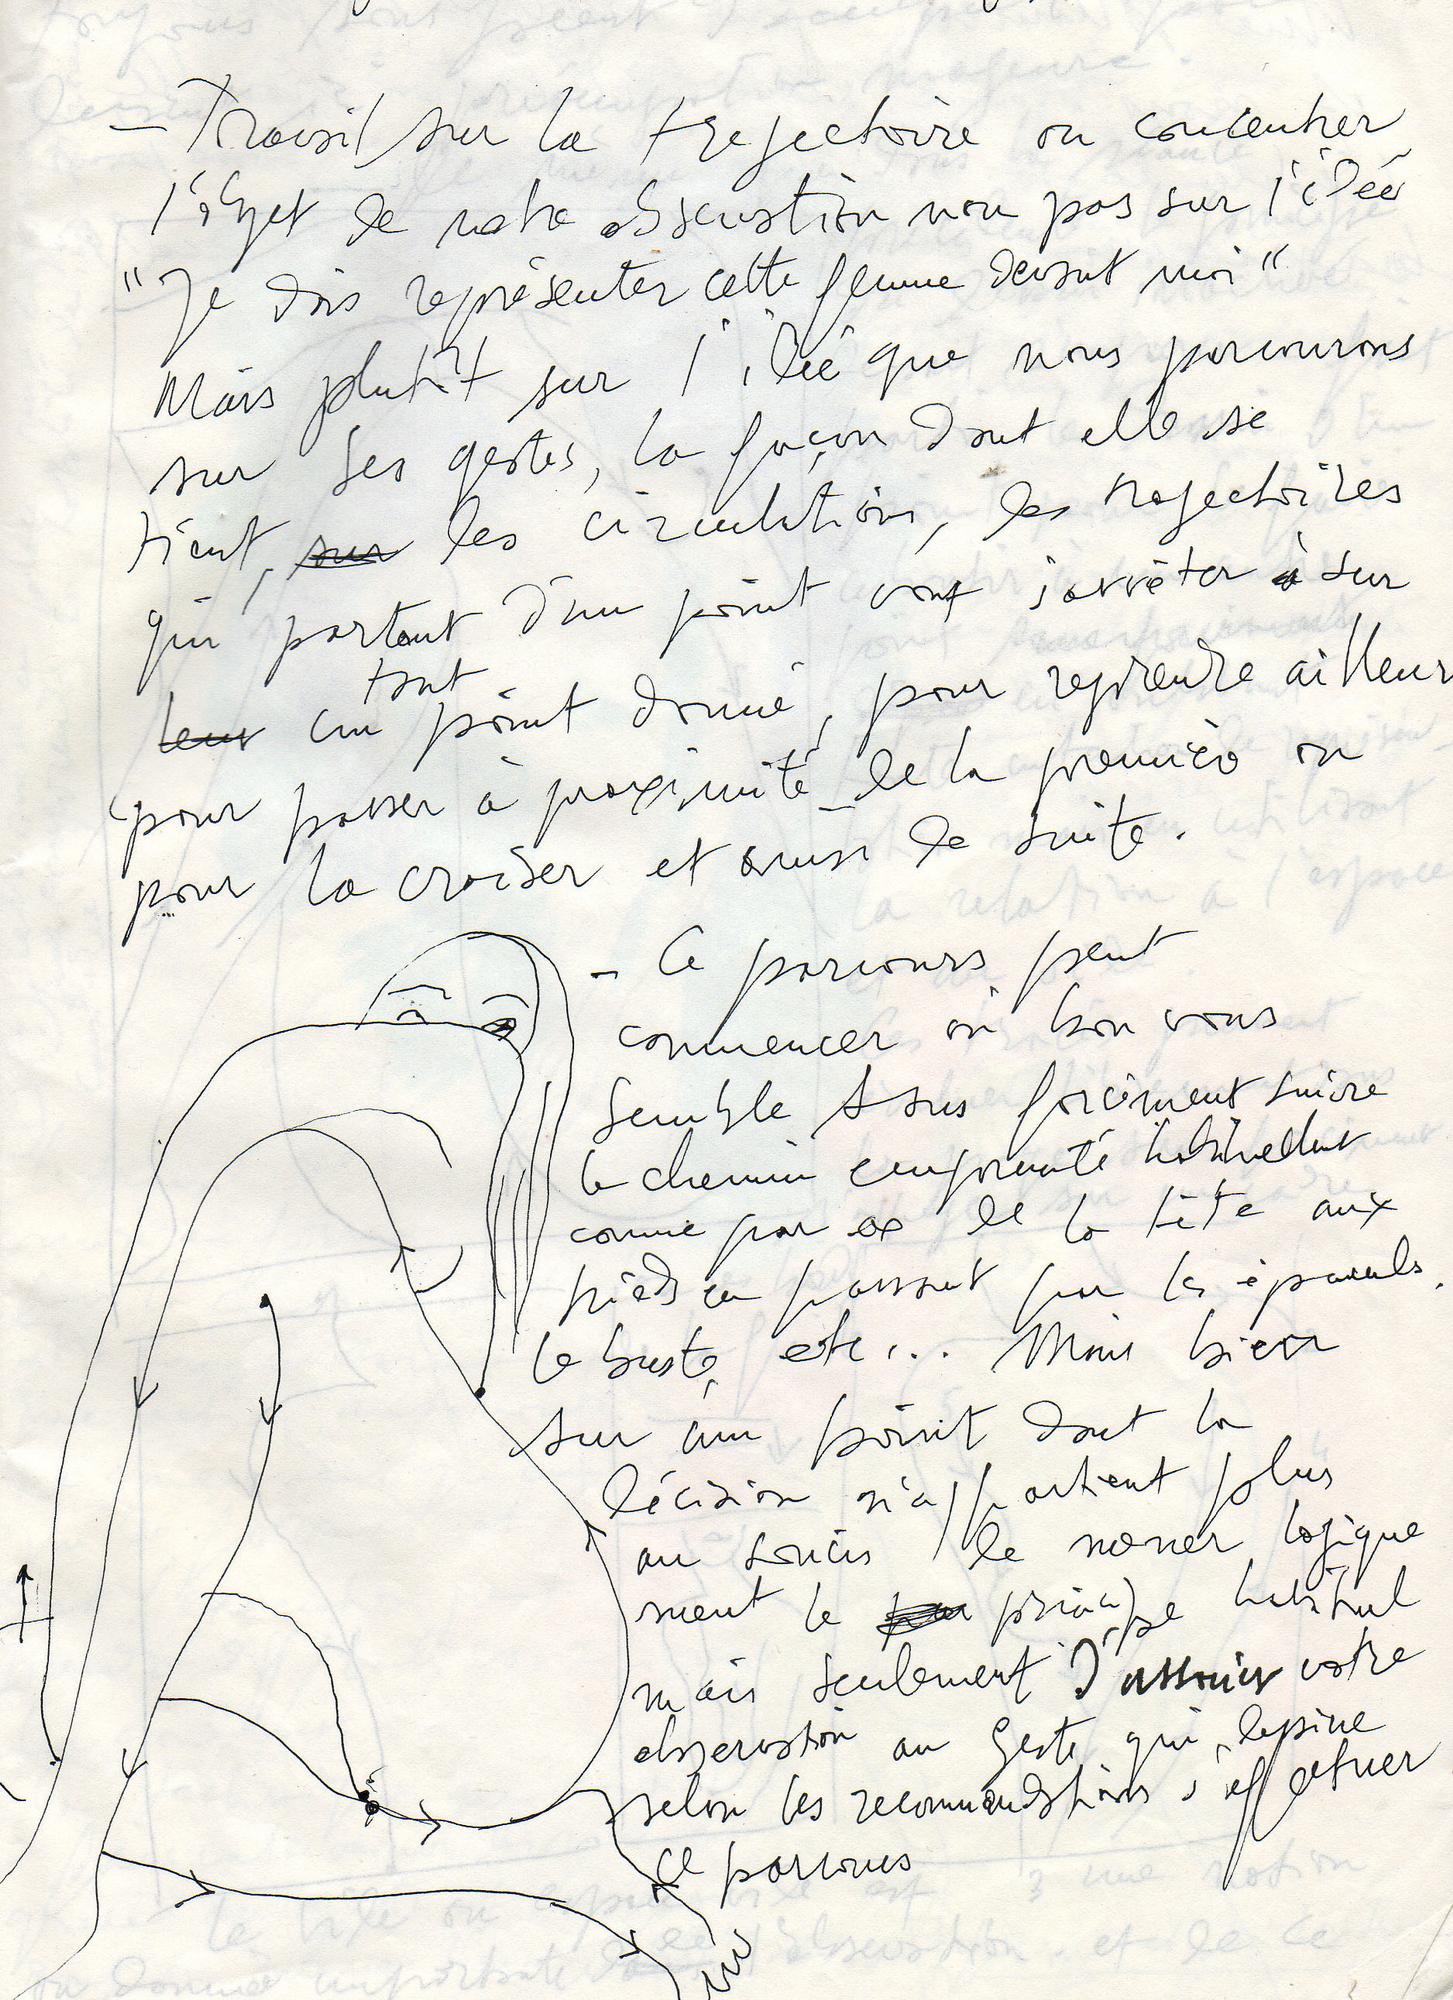 — Travail sur la trajectoire ou concentrer
l'objet de notre observation non pas sur l'idée
"Je dois représenter cette femme devant moi"
Mais plutôt sur l'idée que nous parcourons
sur ses gestes, la façon dont elle se
tient, sur les circulations, les trajectoires
qui partant d'un point vont s'arrêter à sur
tout
leur un point donné, pour reprendre ailleur
pour passer à proximité de la première ou
pour la croiser et ainsi de suite.
- Ce parcours peut
commencer où bon vous
semble sans forcément suivre
le chemin emprunté habituellement
comme par ex de la tête aux
pieds en passant par les épaules,
le buste, etc... Mais bien
sur un point dont la
décision n'appartient plus
au soucis de mener logique
ment le principe habituel
mais seulement d'associer votre
observation au geste qui dessine
selon les recommandations s'effectuer
ce parcours